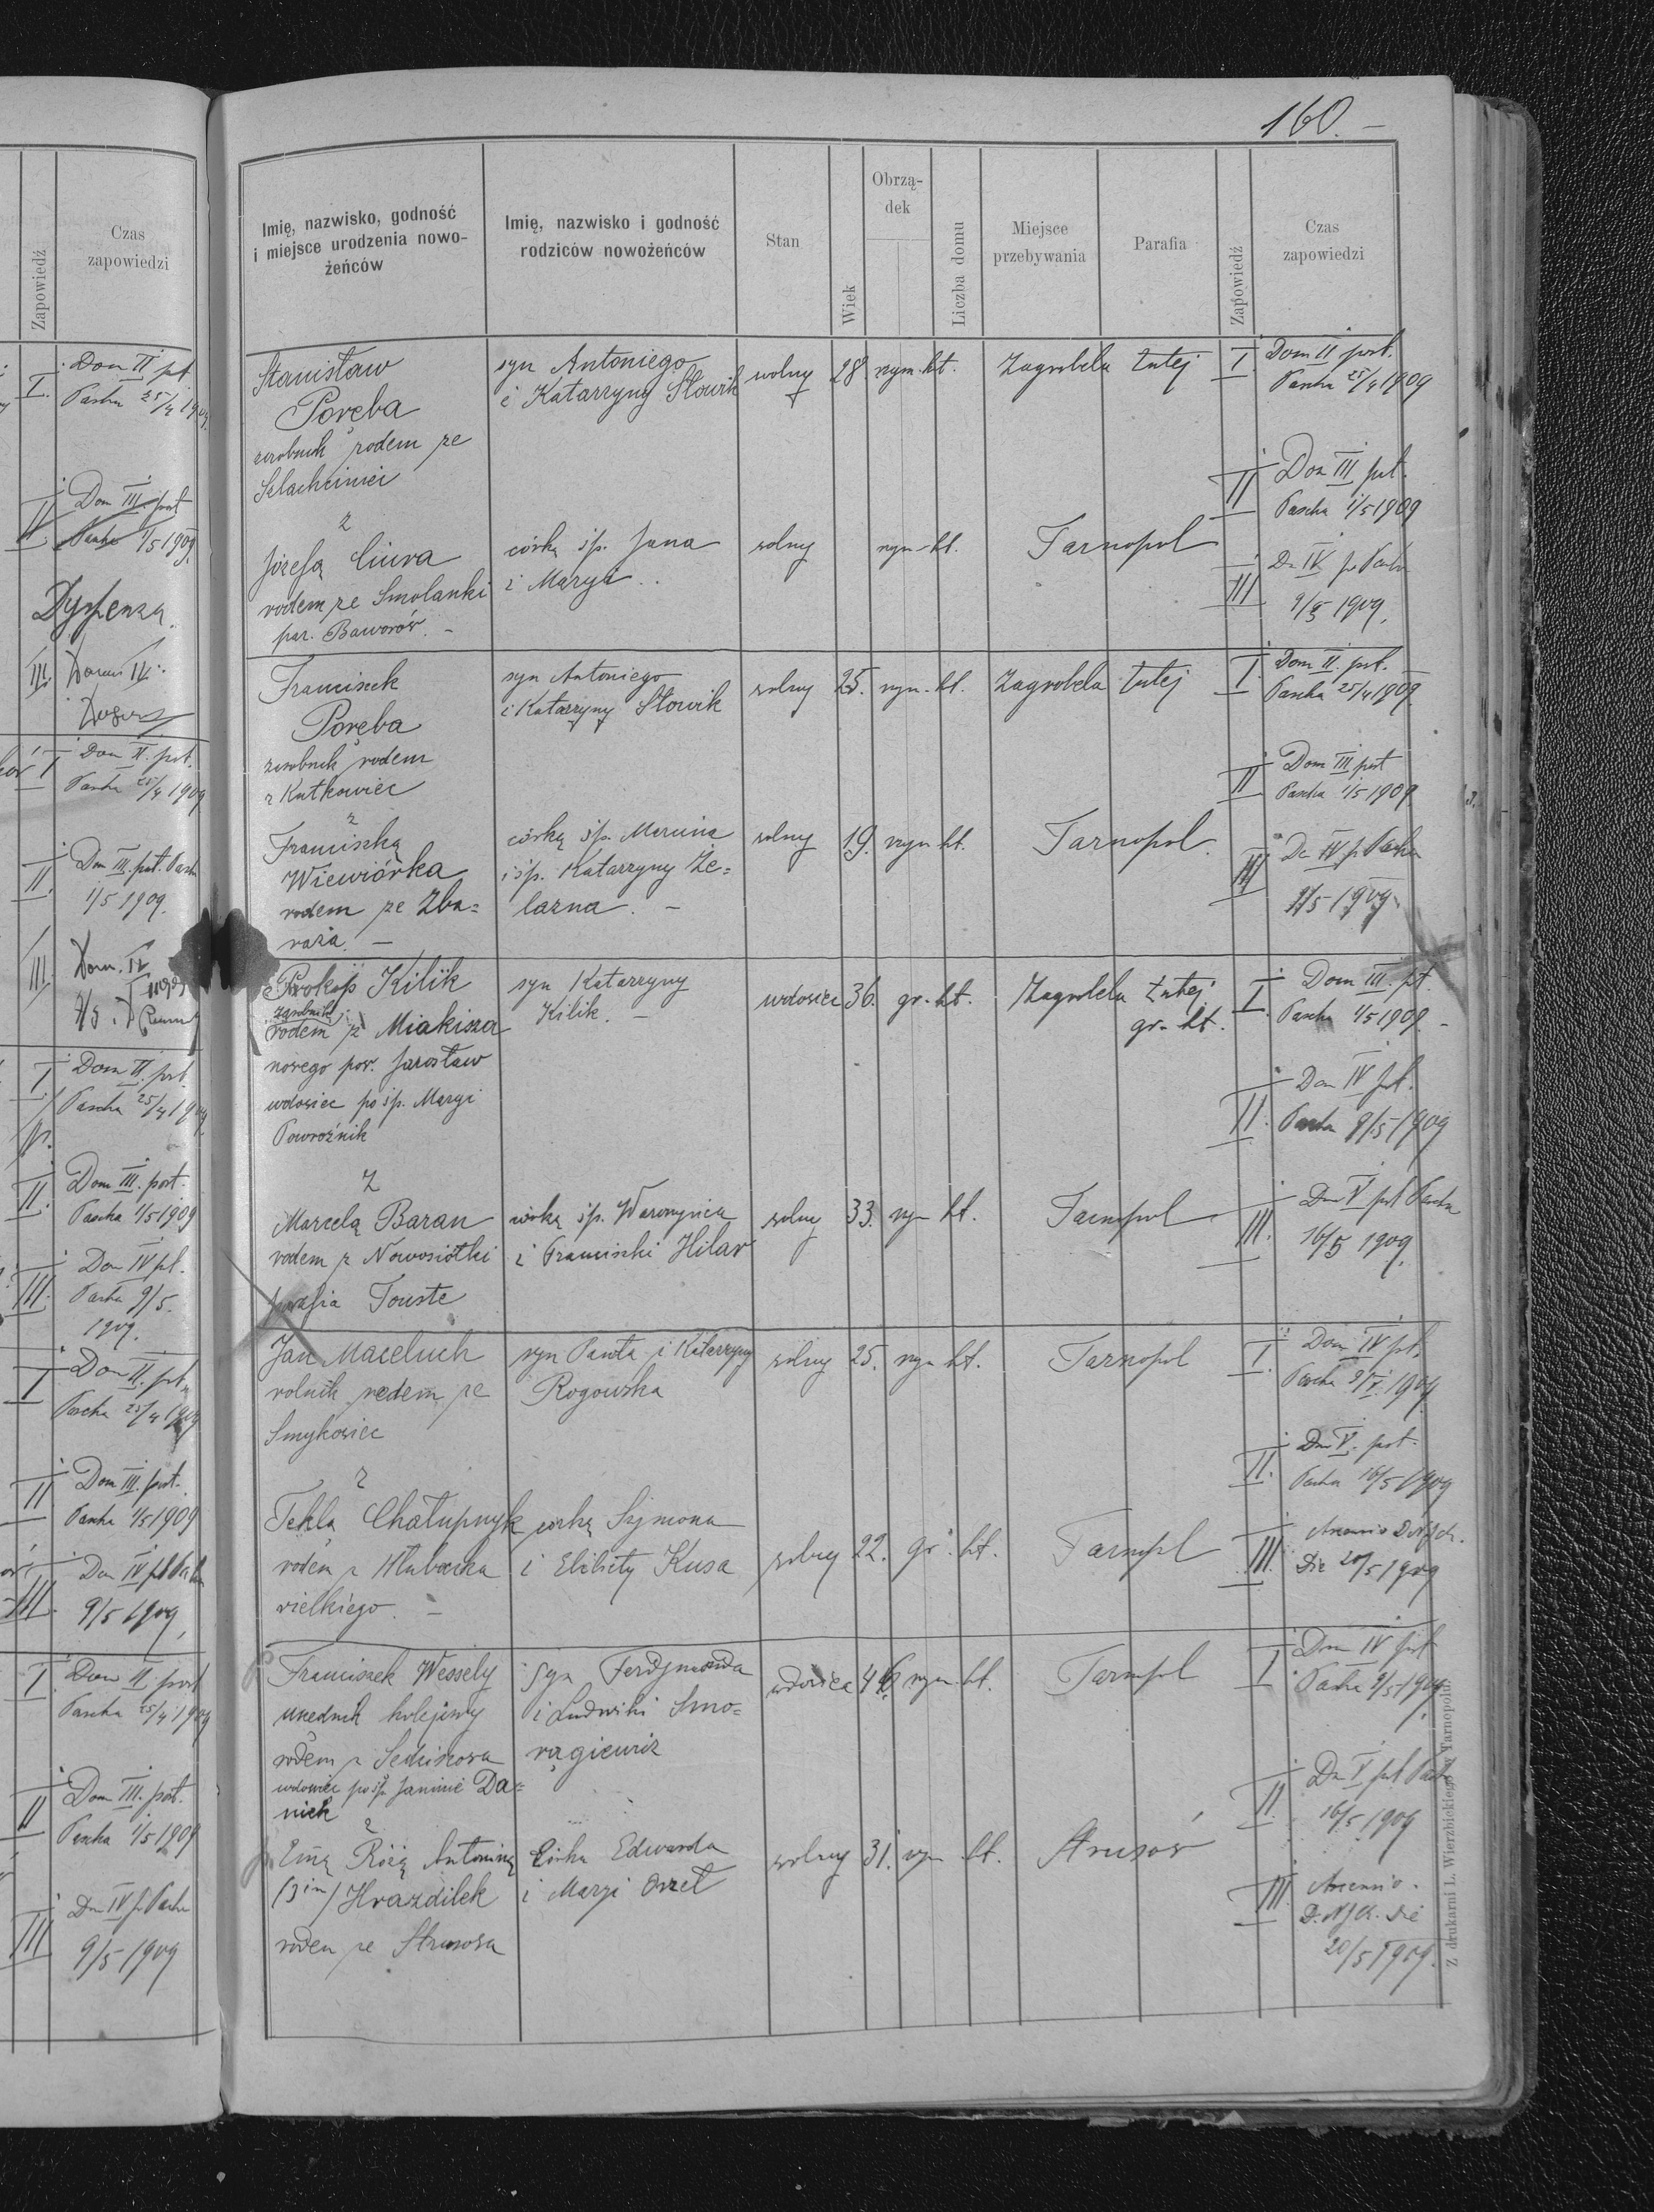 160.
Zapowiedź
Czas
zapowiedzi
I.
Dom II pt.
Pascha 25/4 1909.
II
Dom III. post
Pascha 1/5 1909
Dyspenza.
III.
I
Dom II. pst.
Pascha 25/4 1909
II
Dom III. pst. Pasch
1/5 1909.
III.
Dom. IV
I
Dom II. pst
Pascha 25/4 1909
II.
Dom III. post.
Pascha 1/5 1909
III.
Dom IV pt.
Pascha 9/5.
1909.
I
Dom II. pt.
Pascha 25/4 1909
II
Dom III. pst.
Pascha 1/5 1909
III.
Dom IV pt Pascha
9/5 1909,
I.
Dom II post
Pascha 25/4 1909
II
Dom III. post.
Pascha 1/5 1909
III
Dm IV p. Pascha
9/5 1909
Imię, nazwisko, godność
i miejsce urodzenia nowo-
żeńców
Imię, nazwisko i godność
rodziców nowożeńców
Stan
Wiek
Obrzą-
dek
Liczba domu
Miejsce
przebywania
Parafia
Zapowiedź
Czas
zapowiedzi
Stanisław syn Antoniego wolny 28. rzym. kt. Zagrobela tutej I Dom II post.
Poręba i Katarzyny Słowik Pascha 25/4 1909
zarobnik rodem ze
Szlachciniec II Dom III pst.
Pascha 1/5 1909
z
Józefą Ciura córką śp. Jana wolny rzym-kt. Tarnopol
rodem ze Smolanki i Maryi.. III Dm IV p. Pascha
par. Baworów. - 9/5 1909,
Franciszek syn Antoniego wolny 25. rzym-kt. Zagrobela tutej I. Dom II. pst.
Poręba i Katarzyny Słowik Pascha 25/4 1909.
zarobnik rodem
z Kutkowiec II Dom III post
Pascha 1/5 1909
z
Franciszką córką śp. Marcina wolny 19. rzym kt. Tarnopol. III Dm IV p. Pascha
Wiewiórka i śp. Katarzyny Że= 9/5 1909.
rodem ze Zba= lazna. -
raża. -
Prokop Kilik syn Katarzyny wdowiec 36. gr. kt. Zagrobela tutej I. Dom III. pt.
zarobnik Kilik. - gr-kt. Pascha 1/5 1909. -
rodem z Miakisza
nowego pow. Jarosław
wdowiec po śp. Maryi II. Dom IV pt.
Powroźnik Pascha 9/5 1909
z
Marcelą Baran córką śp. Wawrzyńca wolny 33. rzym kt. Tarnopol III. Dom V pst Pascha
rodem z Nowosiółki i Franciszki Hilar 16/5 1909.
parafia Touste
Jan Maceluch syn Pawła i Katarzyny wolny 25. rzym kt. Tarnopol I. Dom IV pt.
rolnik rodem ze Rogowska Pascha 9/V. 1909
Smykowiec
II. Dm V. pst.
Pascha 16/5 1909
z
Tekla Chałupnyk córką Szymona wolny 22. gr. kt. Tarnopol III.
rodem z Hłuboczka i Elżbiety Kusa die 20/5 1909
wielkiego. -
Franciszek Wessely syn Ferdynanda wdowiec 46 rzym. kt. Tarnopol I Dom IV pst
urzednik kolejowy i Ludwiki Smo= Pascha 9/5 1909.
rodem z
wdowiec po śp. Janinie Da= II. Dm V pst Pascha
niek 16/5 1909
z
Róża Antonina córka Edwarda wolny 31. rzym kt. Strusów III. Ascensio.
(3 im) Hrazdilek i Maryi Orzeł D. N. J. Ch. die
rodem ze Strusowa 20/5 1909.
Z drukarni L. Wierzbickiego w Tarnopolu.